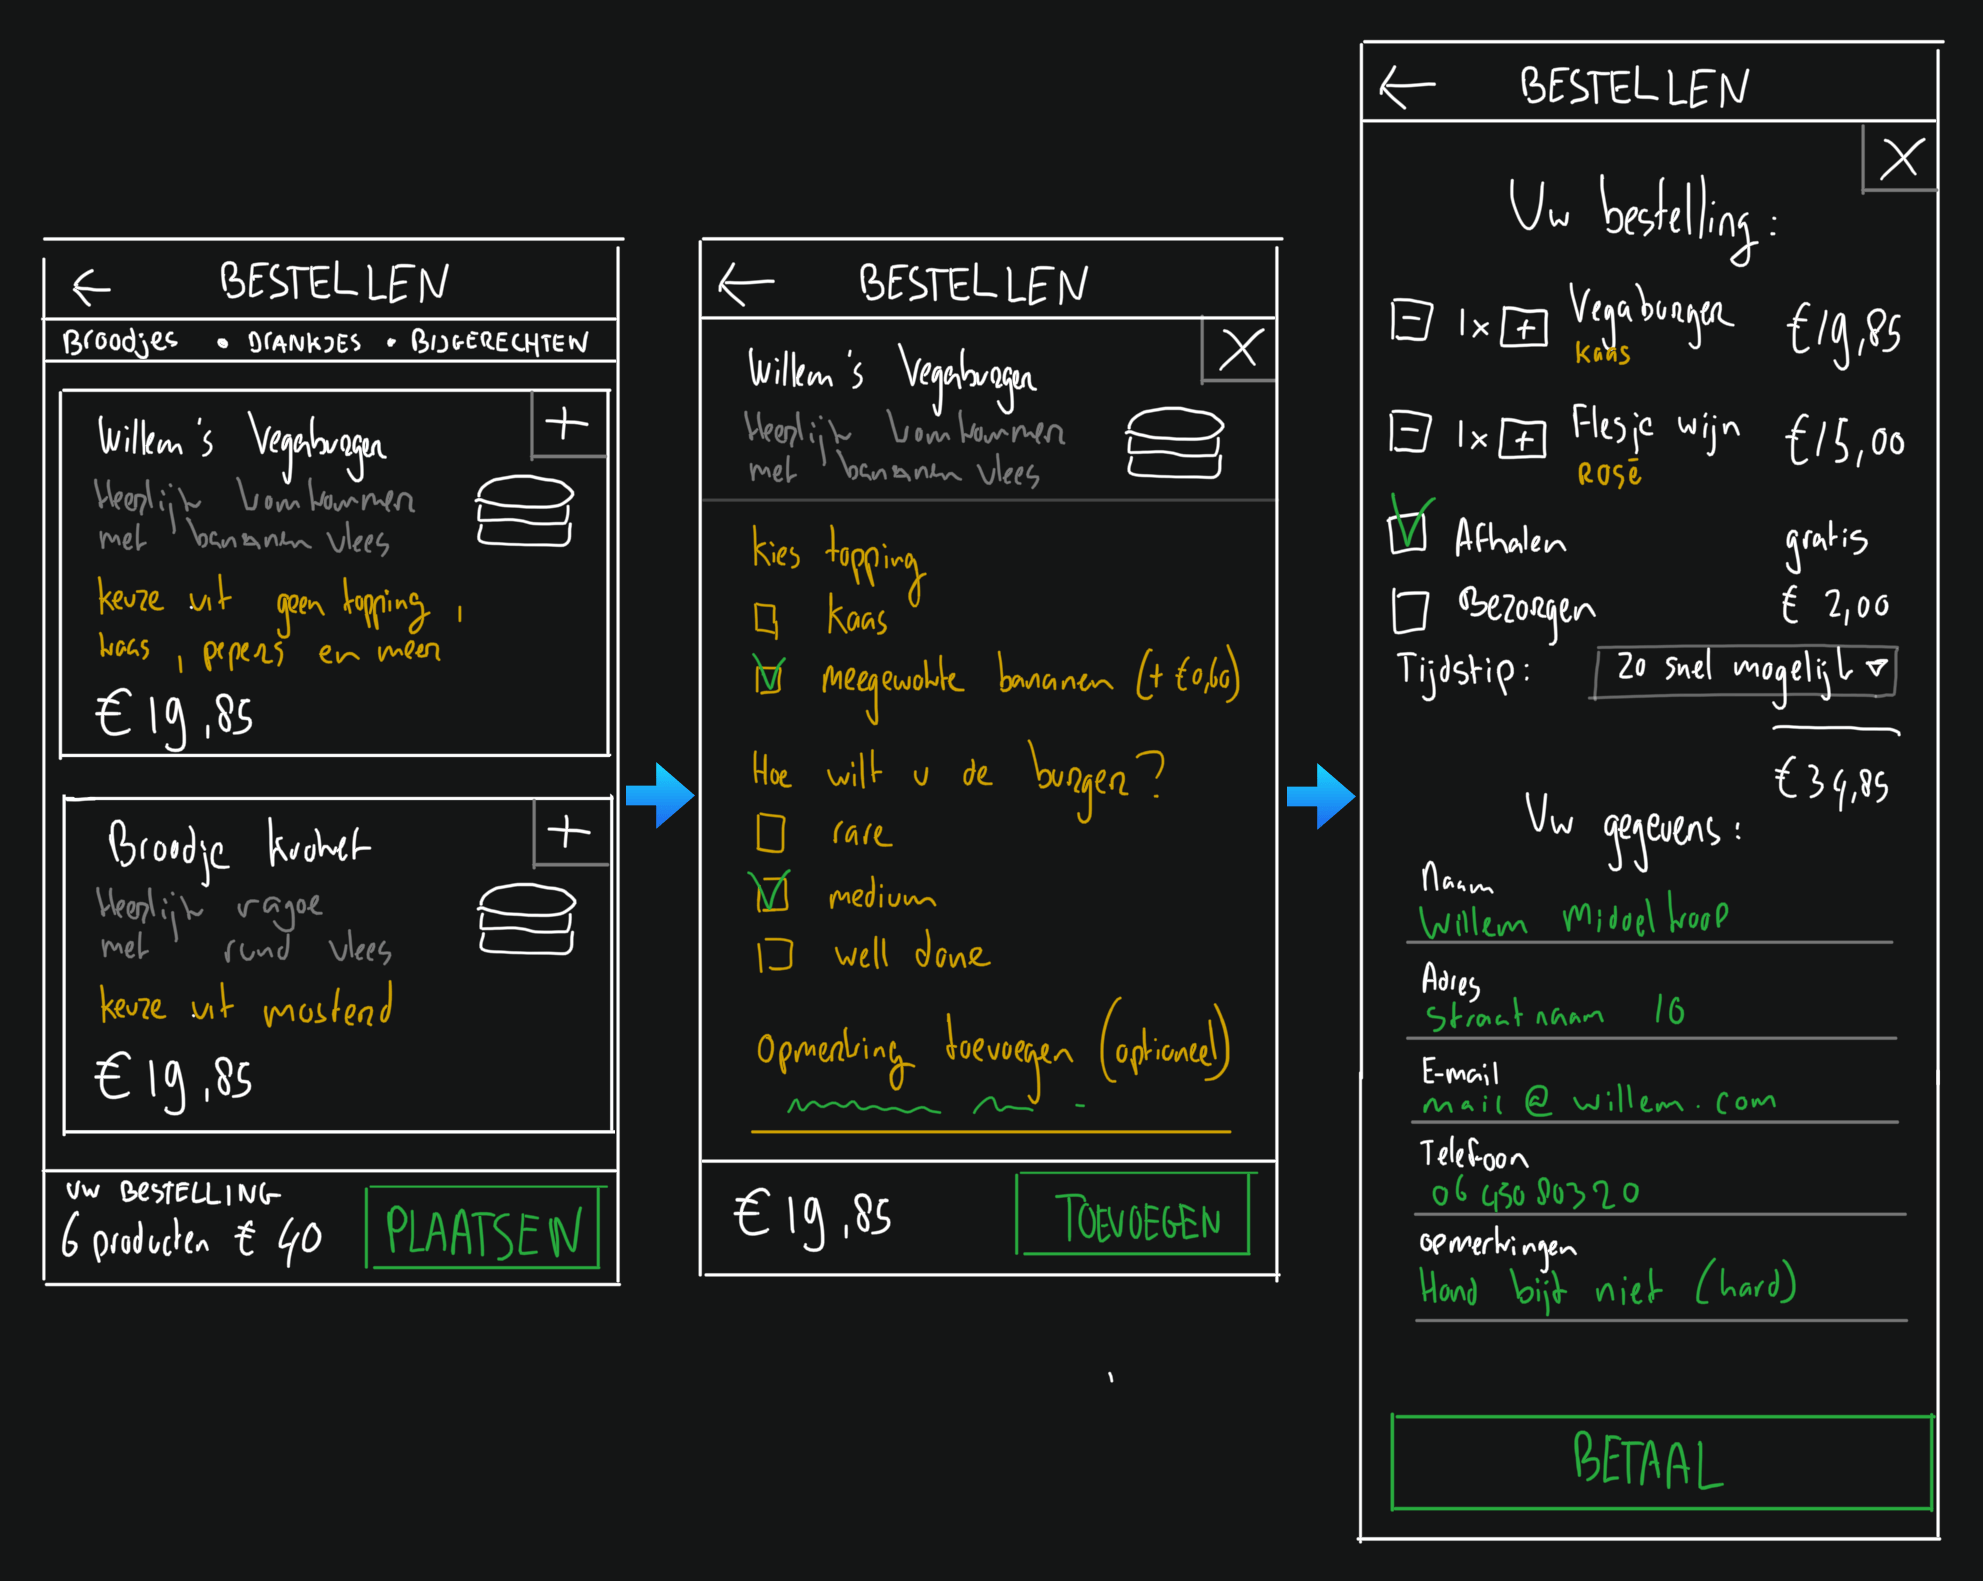 BESTELLEN
Broodjes • DRANKJES • BIJGERECHTEN
Willem's Vegaburger
Heerlijk komkommer
met bananen vlees
keuze uit geen topping,
kaas, pepers en meer
€ 19,85
Broodje kroket
Heerlijk ragoe
met rund vlees
keuze uit mosterd
€ 19,85
UW BESTELLING
6 producten € 40
PLAATSEN
BESTELLEN
X
Willem's Vegaburger
Heerlijk komkommer
met bananen vlees
kies topping
kaas
meegewokte bananen (+ €0,60)
Hoe wilt u de burger?
rare
medium
well done
Opmerking toevoegen (optioneel)
€ 19,85
TOEVOEGEN
BESTELLEN
X
Uw bestelling:
- 1x + Vegaburger €19,85
kaas
- 1x + Flesje wijn €15,00
Rosé
Afhalen gratis
Bezorgen € 2,00
Tijdstip: Zo snel mogelijk
€34,85
Uw gegevens:
Naam
Willem Middelkoop
Adres
Straatnaam 10
E-mail
mail@willem.com
Telefoon
06 45080320
opmerkingen
Hond bijt niet (hard)
BETAAL